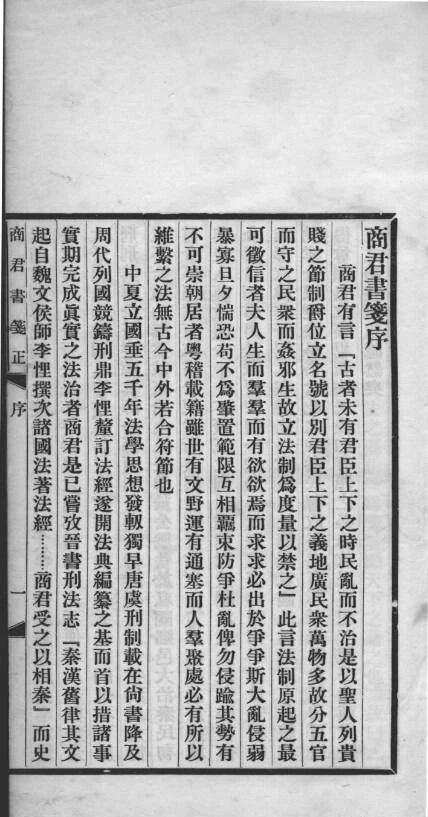 商君書箋序
商君有言「古者未有君臣上下之時民亂而不治是以聖人列貴
賤之節制爵位立名號以別君臣上下之義地廣民衆萬物多故分五官
而守之民衆而姦邪生故立法制爲度量以禁之」此言法制原起之最
可徵信者夫人生而羣羣而有欲欲焉而求求必出於爭爭斯大亂侵弱
暴寡旦夕惴恐苟不爲肇置範限互相羈束防爭杜亂俾勿侵踰其勢有
不可崇朝居者粵稽載籍雖世有文野運有通塞而人羣聚處必有所以
維繫之法無古今中外若合符節也
中夏立國垂五千年法學思想發軔獨早唐虞刑制載在尙書降及
周代列國競鑄刑鼎李悝釐訂法經遂開法典編纂之基而首以措諸事
實期完成眞實之法治者商君是已嘗攷晉書刑法志「秦漢舊律其文
起自魏文侯師李悝撰次諸國法著法經………商君受之以相秦」而史
商君書箋正
序
一